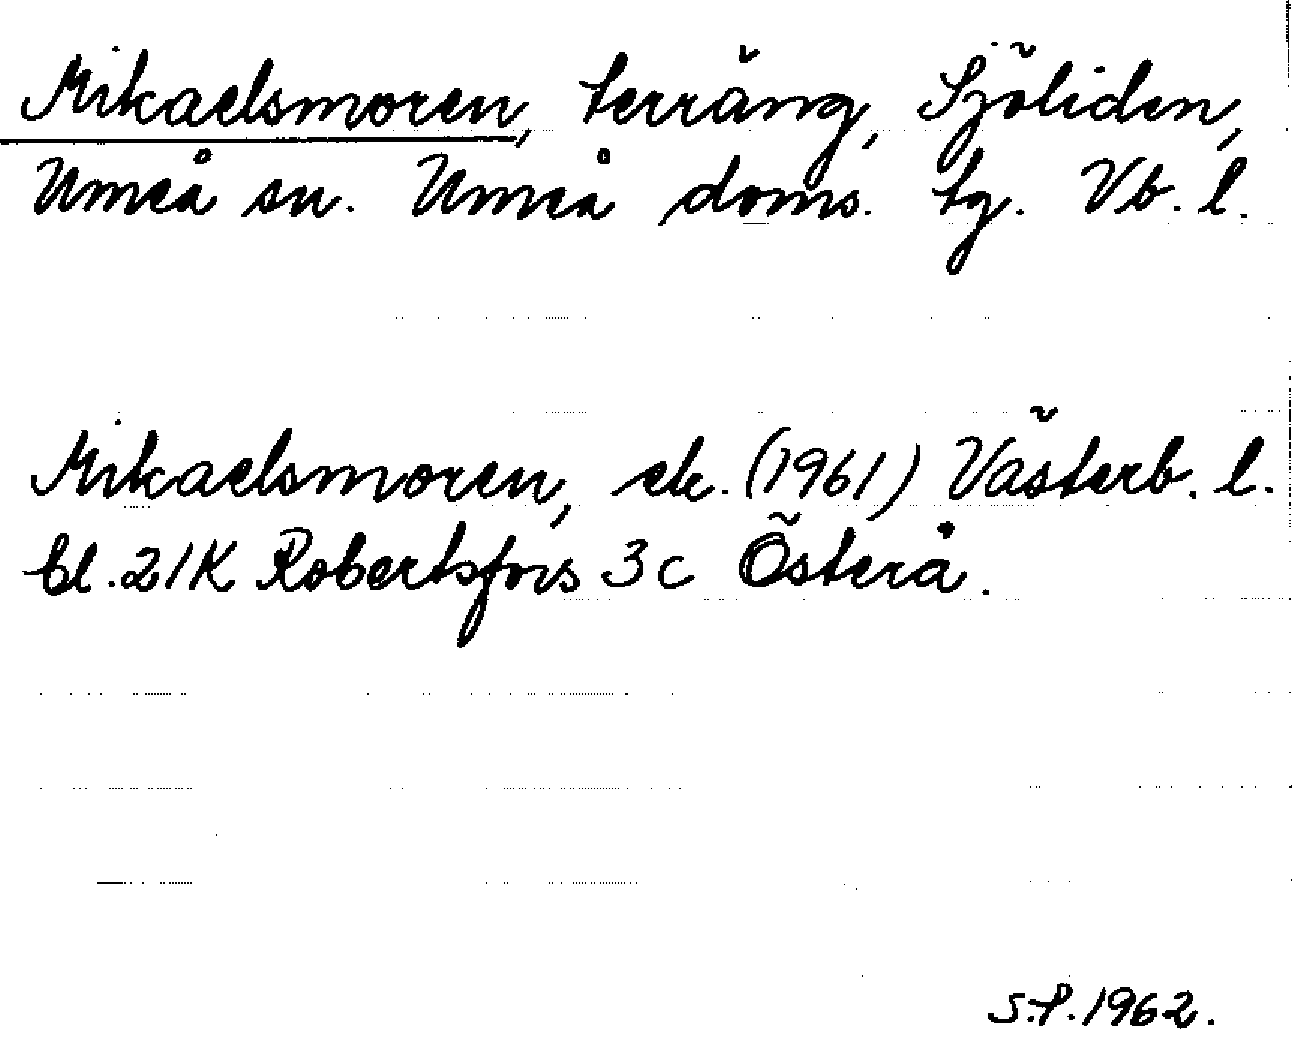 Mikaelsmoren, terräng, Sjöliden,
Umeå sn. Umeå doms. tg. Vb. l.
Mikaelsmoren, ek. (1961) Västerb. l.
bl. 21K Robertsfors 3c Österå.
S.P. 1962.